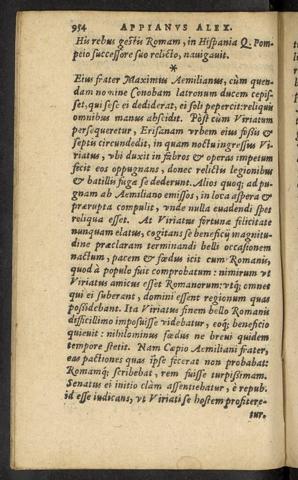 954 APPIANVS ALEX.
His rebus gestis Romam, in Hispania Q. Pom-
peio successore suo relicto, nauigauit.
*
Eius frater Maximus Aemilianus, cùm quen-
dam nomine Conobam latronum ducem cepis-
set, qui sese ei dediderat, ei soli pepercit: reliquis
omnibus manus abscidit. Pòst cùm Viriatum
persequeretur, Erisanam vrbem eius fossis &
septis circundedit, in quam noctu ingressus Vi-
riatus, vbi duxit in fabros & operas impetum
fecit eos oppugnans, donec relictis legionibus
& batillis fugæ se dederunt. Alios quoq; ad pu-
gnam ab Aemiliano emissos, in loca aspera &
prærupta compulit, vnde nulla euadendi spes
reliqua esset. At Viriatus fortunæ felicitate
nunquam elatus, cogitans se beneficij magnitu-
dine præclaram terminandi belli occasionem
nactum, pacem & fœdus icit cum Romanis,
quod à populo fuit comprobatum: nimirum vt
Viriatus amicus esset Romanorum: vtq; omnes
qui ei suberant, domini essent regionum quas
possidebant. Ita Viriatus finem bello Romanis
difficillimo imposuisse videbatur, eoq; beneficio
quieuit: nihilominus fœdus ne breui quidem
tempore stetit. Nam Cæpio Aemiliani frater,
eas pactiones quas ipse fecerat non probabat:
Romamq; scribebat, rem fuisse turpissimam.
Senatus ei initio clàm assentiebatur, è repub.
id esse iudicans, vt Viriati se hostem profitere-
tur.